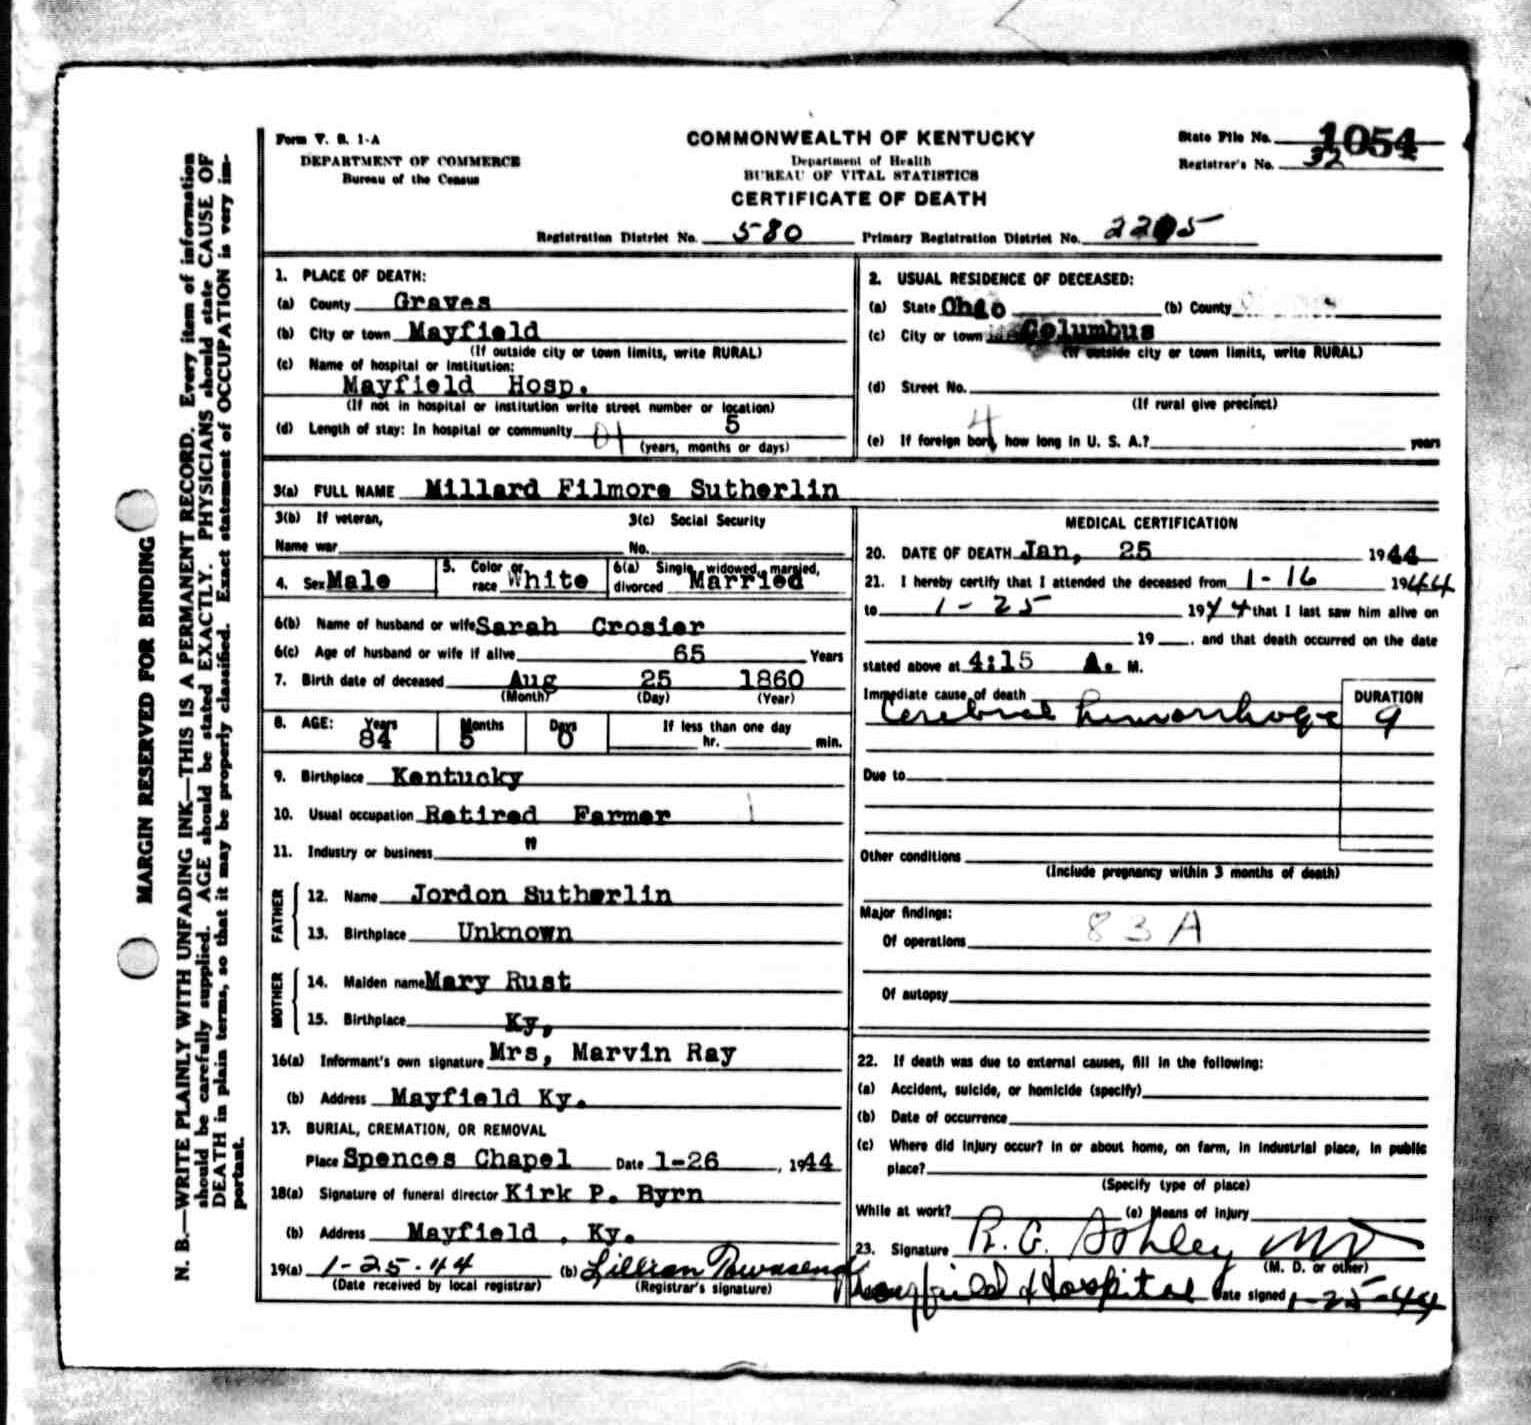 Form V. S. 1-A
DEPARTMENT OF COMMERCE
Bureau of the Census
COMMONWEALTH OF KENTUCKY
Department of Health
BUREAU OF VITAL STATISTICS
CERTIFICATE OF DEATH
State File No. 1054
Registrar's No. 32
Registration District No. 580 Primary Registration District No. 2205
MARGIN RESERVED FOR BINDING
N. B.—WRITE PLAINLY WITH UNFADING INK—THIS IS A PERMANENT RECORD. Every item of information
should be carefully supplied. AGE should be stated EXACTLY. PHYSICIANS should state CAUSE OF
DEATH in plain terms, so that it may be properly classified. Exact statement of OCCUPATION is very im-
portant.
1. PLACE OF DEATH:
(a) County Graves
(b) City or town Mayfield
(If outside city or town limits, write RURAL)
(c) Name of hospital or institution:
Mayfield Hosp.
(If not in hospital or institution write street number or location)
(d) Length of stay: In hospital or community 5
(years, months or days)
2. USUAL RESIDENCE OF DECEASED:
(a) State Ohio (b) County
(c) City or town Columbus
(If outside city or town limits, write RURAL)
(d) Street No.
(If rural give precinct)
4
(e) If foreign born, how long in U. S. A.? years
3(a) FULL NAME Millard Filmore Sutherlin
3(b) If veteran, 3(c) Social Security
Name war No.
4. Sex Male 5. Color or race White 6(a) Single, widowed, married, divorced Married
6(b) Name of husband or wife Sarah Crosier
6(c) Age of husband or wife if alive 65 Years
7. Birth date of deceased Aug 25 1860
(Month) (Day) (Year)
8. AGE: Years Months Days If less than one day
84 5 0 hr. min.
9. Birthplace Kentucky
10. Usual occupation Retired Farmer
11. Industry or business "
FATHER
12. Name Jordon Sutherlin
13. Birthplace Unknown
MOTHER
14. Maiden name Mary Rust
15. Birthplace Ky,
16(a) Informant's own signature Mrs, Marvin Ray
(b) Address Mayfield Ky.
17. BURIAL, CREMATION, OR REMOVAL
Place Spences Chapel Date 1-26, 1944
18(a) Signature of funeral director Kirk P. Byrn
(b) Address Mayfield , Ky.
19(a) 1-25-44 (b) Lillian Townsend
(Date received by local registrar) (Registrar's signature)
MEDICAL CERTIFICATION
20. DATE OF DEATH Jan, 25 1944
21. I hereby certify that I attended the deceased from 1-16 1944
to 1-25 1944 that I last saw him alive on
19 . and that death occurred on the date
stated above at 4:15 A. M.
Immediate cause of death DURATION
Cerebral hemorrhage 9
Due to
Other conditions
(Include pregnancy within 3 months of death)
Major findings: 83A
Of operations
Of autopsy
22. If death was due to external causes, fill in the following:
(a) Accident, suicide, or homicide (specify)
(b) Date of occurrence
(c) Where did injury occur? In or about home, on farm, in industrial place, in public
place?
(Specify type of place)
While at work? (e) Means of injury
23. Signature R. G. Ashley MD
(M. D. or other)
Mayfield Hospital Date signed 1-25-44